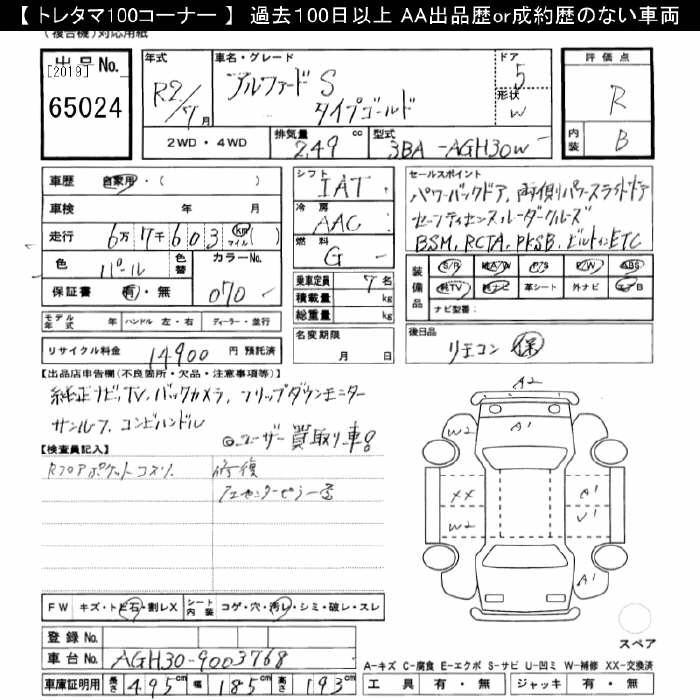 【 トレタマ100コーナー 】 過去100日以上 AA出品歴or成約歴のない車両
(複合機)対応用紙
出品No.
[2019]
65024
年式
R2/7月
車名・グレード
アルファード S
タイプゴールド
ドア
5
形状
W
評価点
R
内装
B
2WD・4WD
排気量
2,49 cc
型式
3BA-AGH30W
車歴 自家用・( )
車検 年 月
走行 6万7千603 km マイル ( )
色 パール
色替
カラーNo.
070
保証書 有・無
シフト
IAT
冷房
AAC
燃料
G
乗車定員 7名
積載量 kg
総重量 kg
セールスポイント
パワーバックドア、両側パワースライドドア
セーフティセンス、レーダークルーズ
BSM、RCTA、PKSB、ビルトインETC
装備品
S/R 純A/W P/S P/W ABS
純TV 純ナビ 革シート 外ナビ エアB
ナビ型番:
モデル年式 年 ハンドル 左・右 ディーラー・並行
リサイクル料金 14900 円 預託済
名変期限
月 日
後日品
リモコン 保
【出品店申告欄(不良箇所・欠品・注意事項等)】
純正ナビTV、バックカメラ、フリップダウンモニター
サンルーフ、コンビハンドル
◎ユーザー買取り車
【検査員記入】
RフロアポケットコスリX 修復
A2
W2
A1
XX
A1
W2
U1
A1
FW キズ・トビ石・割レX
シート内装 コゲ・穴・汚レ・シミ・破レ・スレ
登録No.
車台No. AGH30-9003768
車庫証明用 長さ 495cm 幅 185cm 高さ 193cm
スペア
A-キズ C-腐食 E-エクボ S-サビ U-凹ミ W-補修 XX-交換済
工具 有・無 ジャッキ 有・無